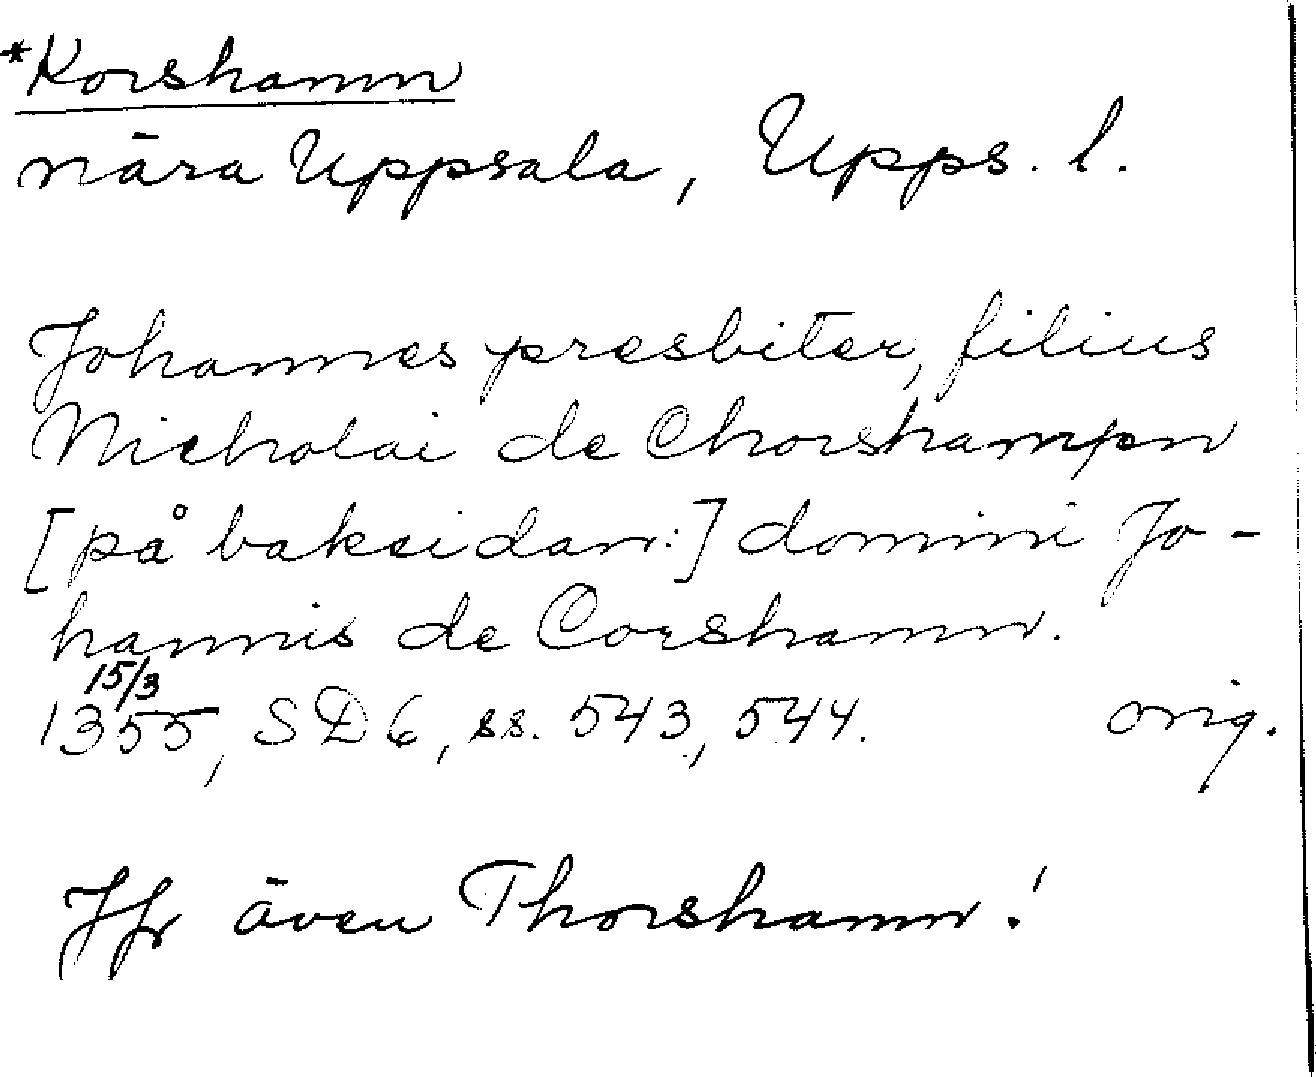 *Korshamn
nära Uppsala, Upps. l.
Johannes presbiter, filius
Nicholai de Chorshampn
[på baksidan:] domini Jo-
hannis de Corshamn.
15/3
1355, SD 6, ss. 543, 544. orig.
Jfr även Thorshamn!